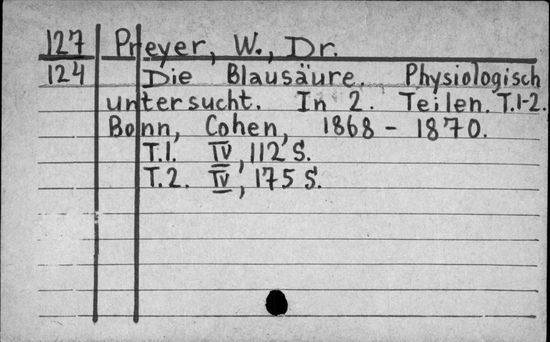 127 Preyer, W., Dr.
124 Die Blausäure. Physiologisch
untersucht. In 2. Teilen. T.1-2.
Bonn, Cohen, 1868 - 1870.
T.1. IV, 112 S.
T.2. IV, 175 S.